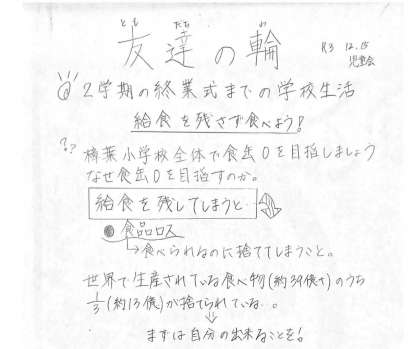 とも だち わ
友達の輪
R3 12.15
児童会
2学期の終業式までの学校生活
給食を残さず食べよう!
?? 樟葉小学校全体で食缶0を目指しましょう
なぜ食缶0を目指すのか。
給食を残してしまうと…
● 食品ロス
→食べられるのに捨ててしまうこと。
世界で生産されている食べ物(約39億t)のうち
1/3(約13億)が捨てられている…。
まずは自分の出来ることを!